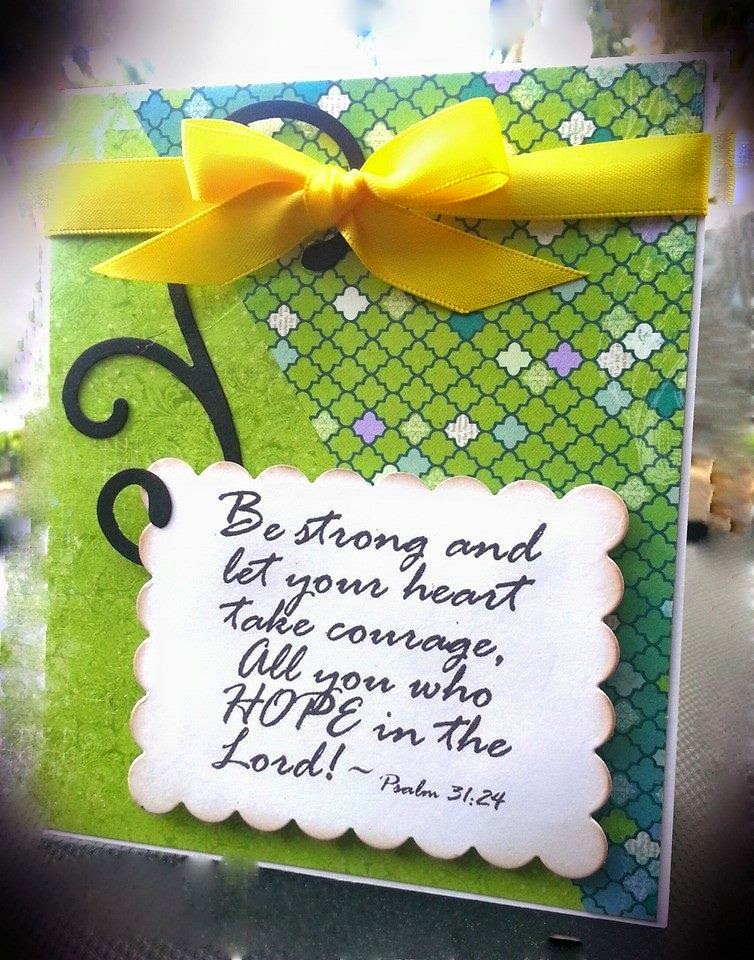 Be strong and
let your heart
take courage,
All you who
HOPE in the
Lord! ~ Psalm 31:24